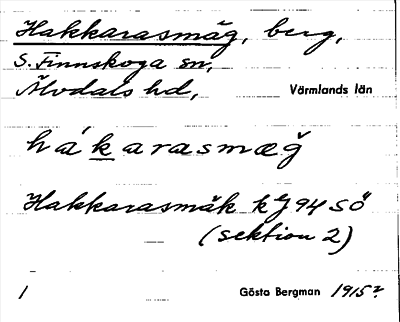 Hakkarasmäg, berg,
S. Finnskoga sn,
Älvdals hd, Värmlands län
hákarasmæğ
Hakkarasmäk kJ 94 SÖ
(sektion 2)
1 Gösta Bergman 1915?